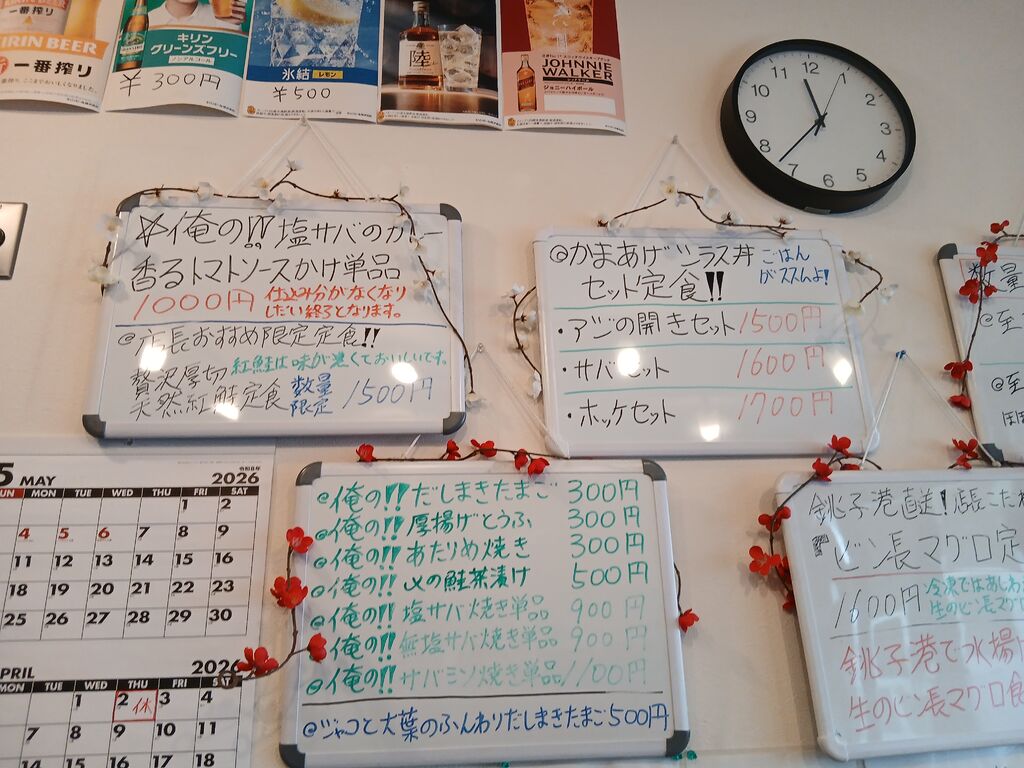 一番搾り
KIRIN BEER
一番搾り
キリン
グリーンズフリー
ノンアルコール
¥300円
氷結 レモン
¥500
陸
JOHNNIE
WALKER
ジョニーハイボール
12
1
2
3
4
5
6
7
8
9
10
11
☆俺の!!塩サバのカレー
香るトマトソースかけ単品
1000円 仕込み分がなくなり
しだい終了となります。
@店長おすすめ限定定食!!
紅鮭は味が濃くておいしいです。
贅沢厚切
天然紅鮭定食 数量
限定 1500円
@かまあげシラス丼 ごはん
がススムよ!
セット定食!!
・アジの開きセット 1500円
・サバセット 1600円
・ホッケセット 1700円
数量
@至
@至
@俺の!!だしまきたまご 300円
@俺の!!厚揚げとうふ 300円
@俺の!!あたりめ焼き 300円
@俺の!!〆の鮭茶漬け 500円
@俺の!!塩サバ焼き単品 900円
@俺の!!無塩サバ焼き単品 900円
@俺の!!サバミリン焼き単品 1100円
@ジャコと大葉のふんわりだしまきたまご500円
銚子港直送!店長こだわ
ビン長マグロ定
1600円 冷凍ではあじわ
生のビン長マグ
銚子港で水揚げ
生のビン長マグロ食
5 MAY 令和8年 2026
SUN MON TUE WED THU FRI SAT
1 2
4 5 6 7 8 9
11 12 13 14 15 16
18 19 20 21 22 23
25 26 27 28 29 30
APRIL 2026
MON TUE WED THU FRI SAT
1 2 休 3 4
7 8 9 10 11
14 15 16 17 18